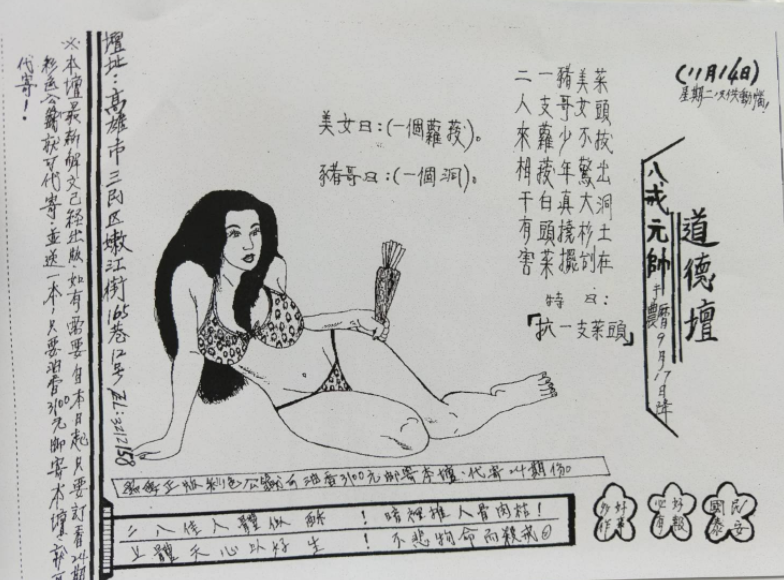 (11月14日)
星期二
道德壇
八戒元帥
于農曆9月17日降
菜頭拔出洞土在
美女不驚大杉刣
豬哥少年真撓擺
一支蘿菝白頭菜
二人來相干有害
特曰:
「抗一支菜頭」
美女曰:(一個蘿菝)。
豬哥曰:(一個洞)。
壇址:高雄市三民区嫩江街165巷12号 TEL:3212158
※本壇最新解文已經出版.如有需要自本日起只要訂香24期
彩色公籤就可代寄.並送一本!只要油香3100元郵寄本壇.就可
代寄!
正版彩色公籤可油香3100元郵寄本壇.代寄24期份
二八佳人體似酥!暗裡摧人骨肉枯!
上體天心以好生!不悲物命而殺戒
好事多作
好報必有
民安國泰